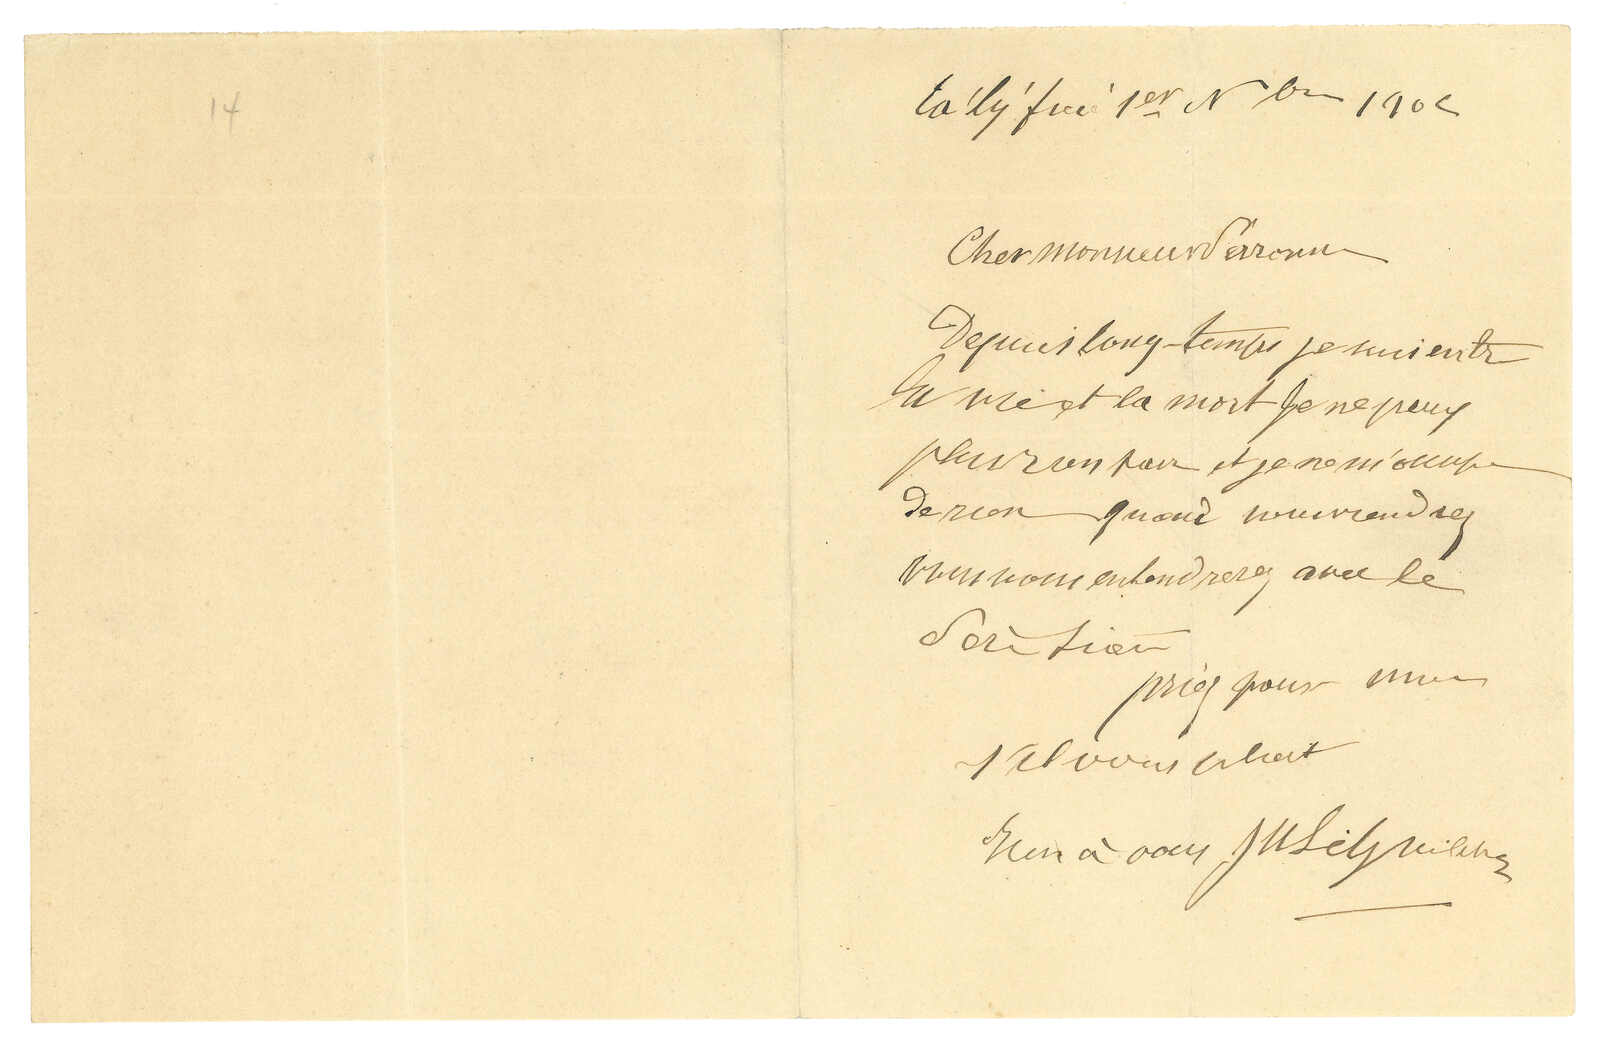 14
1er Nbre 190
Cher Monsieur Perronne
Depuis long-temps je suis entre
la vie et la mort Je ne peux
plus rien faire et je ne m'occupe
de rien quand vous viendrez
vous vous entendrez avec le
Père
priez pour moi
s'il vous plait
Rien à vous